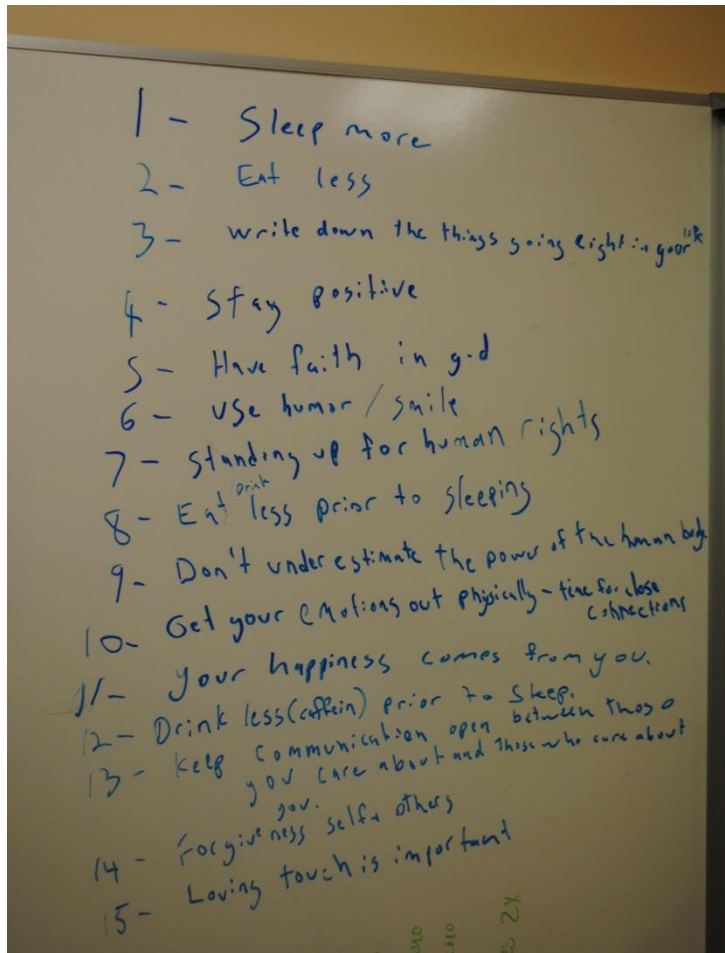 1 - Sleep more
2 - Eat less
3 - write down the things going right in your life
4 - Stay positive
5 - Have faith in g-d
6 - use humor / smile
7 - Standing up for human rights
8 - Eat/Drink less prior to sleeping
9 - Don't underestimate the power of the human body
10 - Get your emotions out physically - time for close
connections
11 - your happiness comes from you.
12 - Drink less (caffein) prior to sleep.
13 - Keep communication open between those
you care about and those who care about
you.
14 - Forgiveness self + others
15 - Loving touch is important
2X